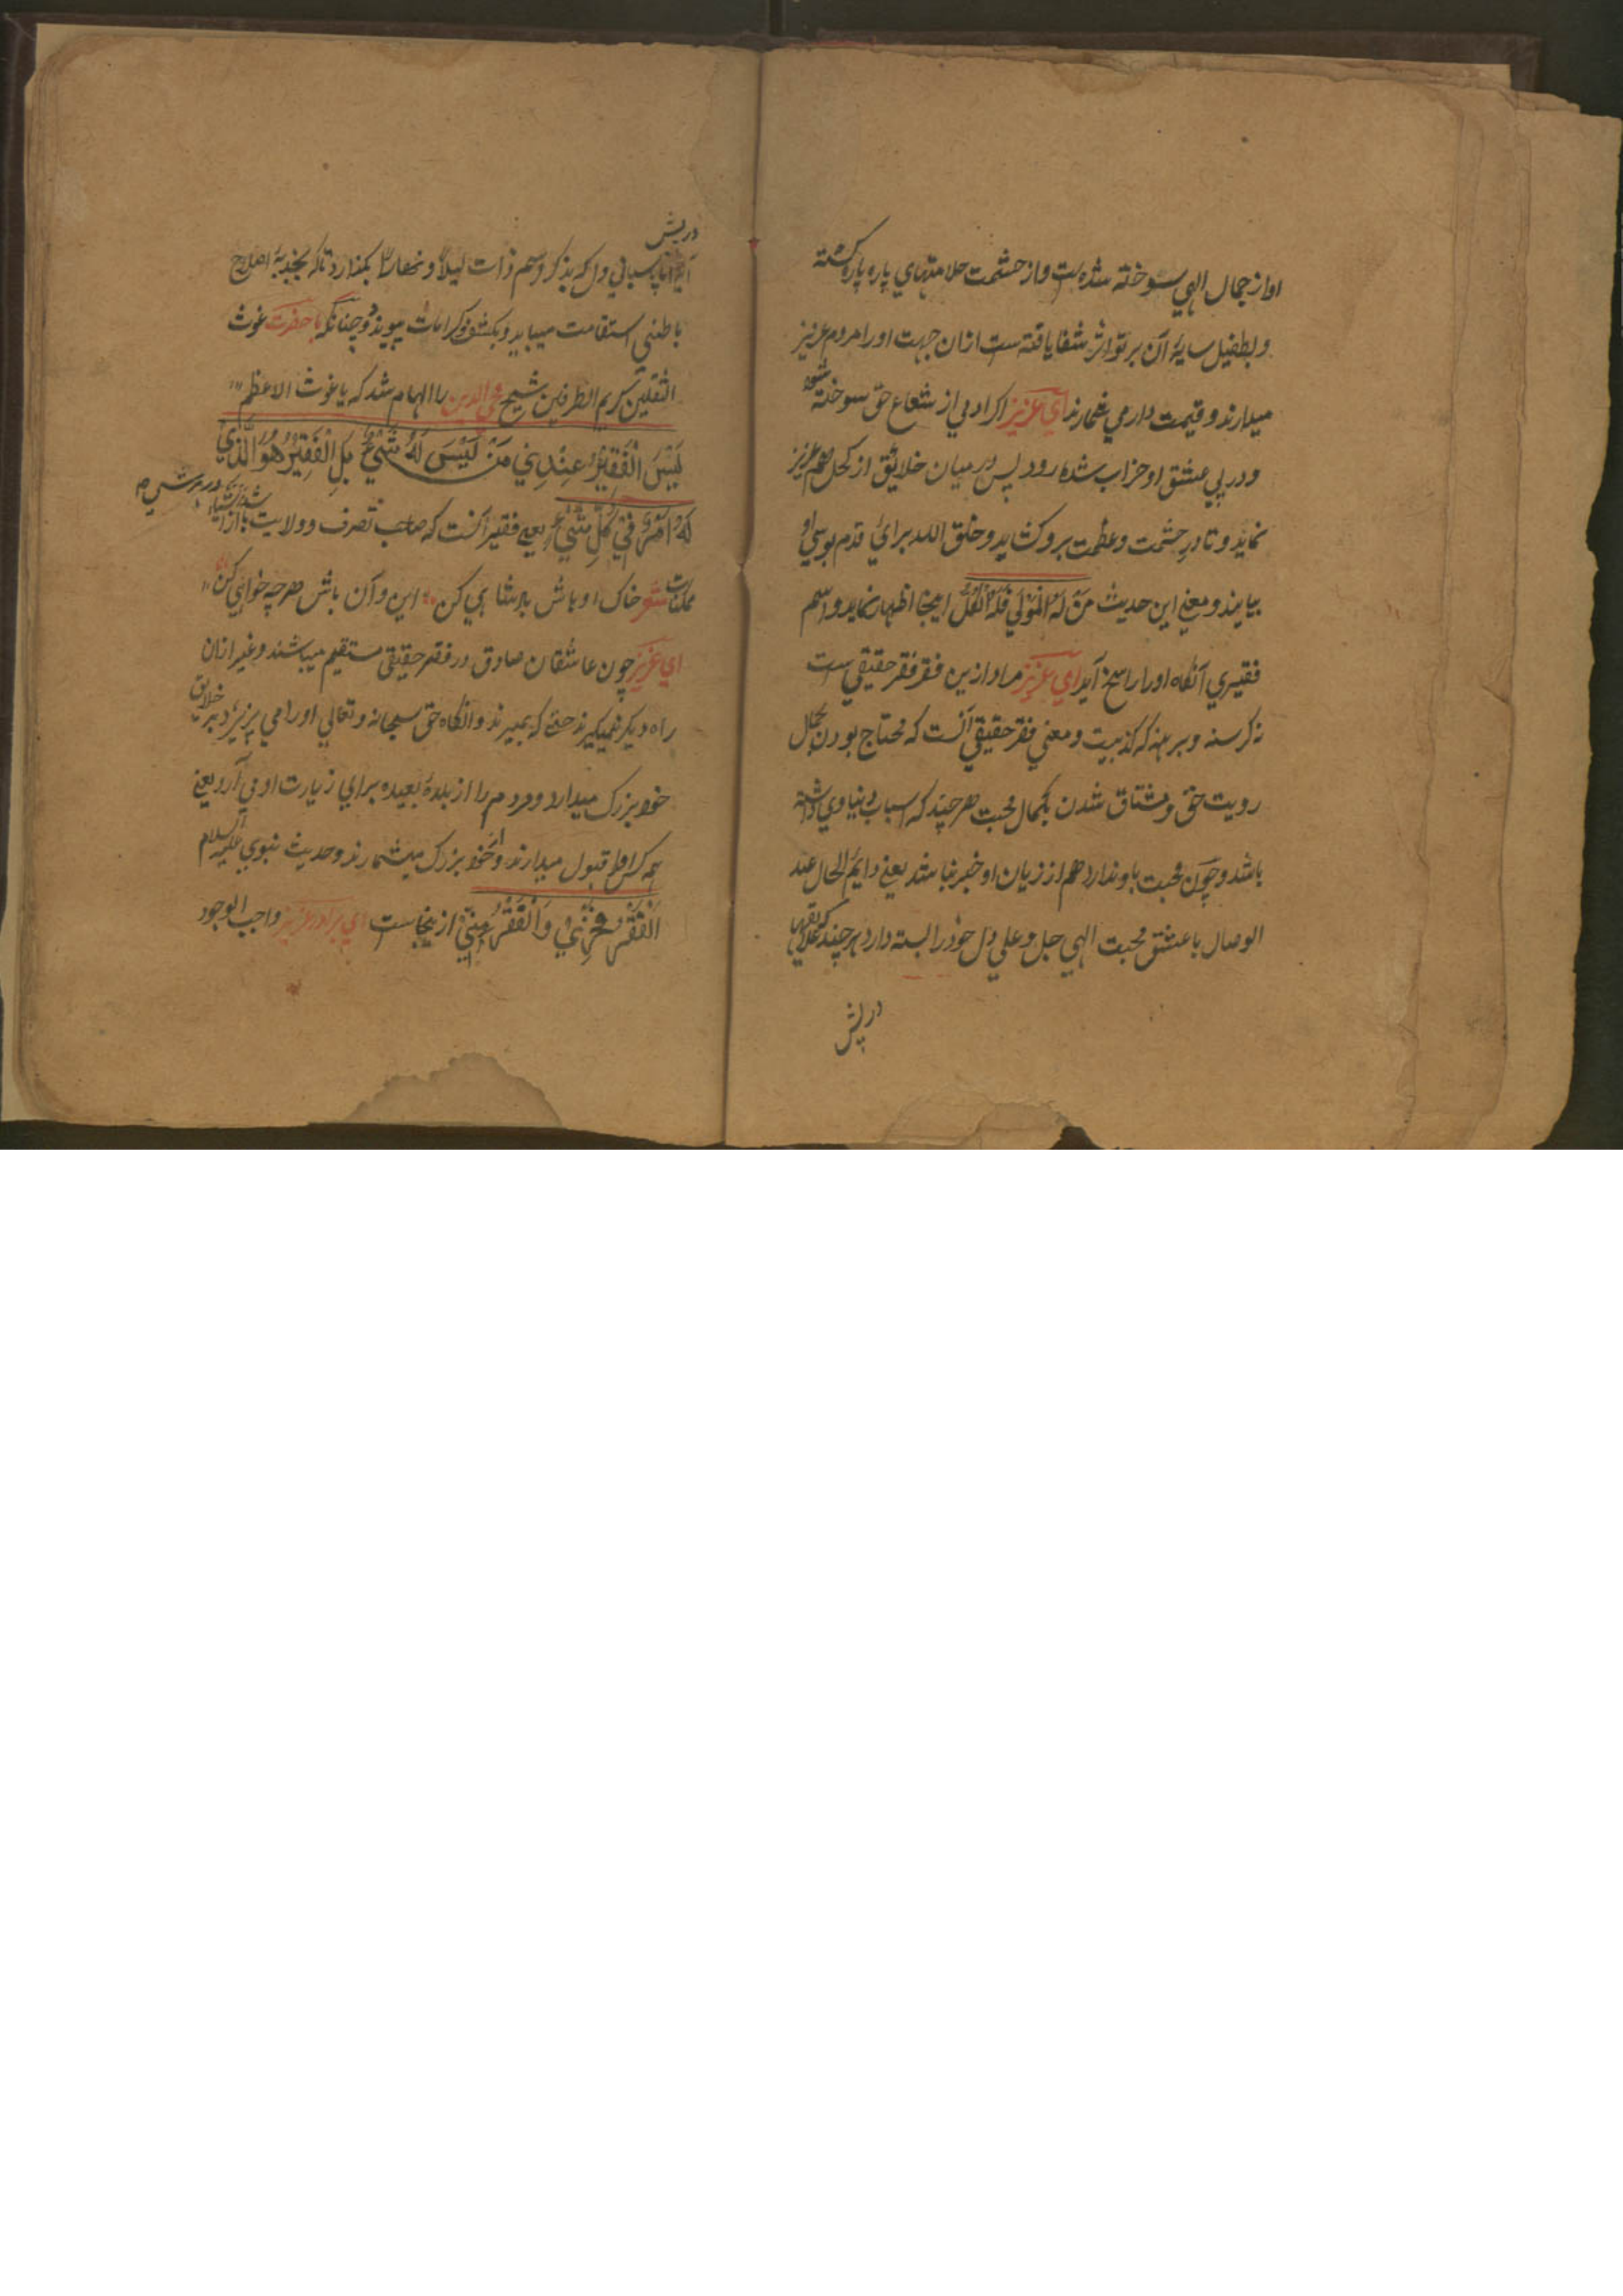 او از جمال الهي سوخته شده است و از حشمت حلامتهاي پاره پاره كشته
و بطفيل سايۀ آن بر تو اثر شفا يافته ست ازان جهت او را مردم عزيز
ميدارند و قيمت دار مي شمارند اي عزيز اكر ادمي از شعاع حق سوخته شود
و در پي عشق او خراب شده رود پس در ميان خلايق از كحل هم عزيز
نمايد و تا در حشمت و عظمت برو كشايد و خلق الله براي قدم بوسي او
بيايند و معني اين حديث مَنْ لَهُ الْمَوْلي فَلَهُ الْكُلُّ اينجا اظهار نمايد و اسم
فقيري آنكاه او را راسخ آيد اي عزيز مراد ازين فقر فقر حقيقي ست
نه كرسنه و برهنه كه كذبيت و معني فقر حقيقي آنست كه محتاج بودن بجمال
رويت حق و مشتاق شدن بكمال محبت هر چند كه اسباب دنياوي داشته
باشد و چون محبت باو ندارد هم از زيان او خبر نباشد يعني دايم الحال عند
الوصال با عشق محبت الهي جل و علي دل خود را بسته دارد هر چند كه
در پيش
در پيش
آيد اما پاسباني دل كه بذكر و سم ذات ليلاً و نهاراً بكذارد تا كه بجذبۀ اصلاح
باطني استقامت مييابد و بكشف و كرامات مي پيوندد چنانكه با حضرت غوث
الثقلين كريم الطرفين شيخ محي الدين را الهام شد كه يا غوث الاعظم
لَيْسَ الْفَقِيْرُ عِنْدِيْ مَنْ لَيْسَ لَهُ شَيْءٌ بَلِ الْفَقِيْرُ هُوَ الَّذِيْ
لَهُ اَمْرٌ فِيْ كُلِّ شَيْءٍ يعني فقير آنست كه صاحب تصرف و ولايت باشد
مملكت شعر خاك او باش پادشاهي كن اين و آن باش هر چه خواهي كن
اي عزيز چون عاشقان صادق در فقر حقيقي مستقيم ميباشند و غير ازان
راه ديكر نميكيرند حتي كه بميرند و انكاه حق سبحانه و تعالي او را مي پزيرد و بر خلايق
خود بزرك ميدارد و مردم را از بلدۀ بعيده براي زيارت او مي آرد يعني
همه كس او را قبول ميدارند و از خود بزرك ميشمارند و حديث نبوي عليه السلام
اَلْفَقْرُ فَخْرِيْ وَالْفَقْرُ مِنِّيْ ازينجاست اي برادر عزيز واجب الوجود